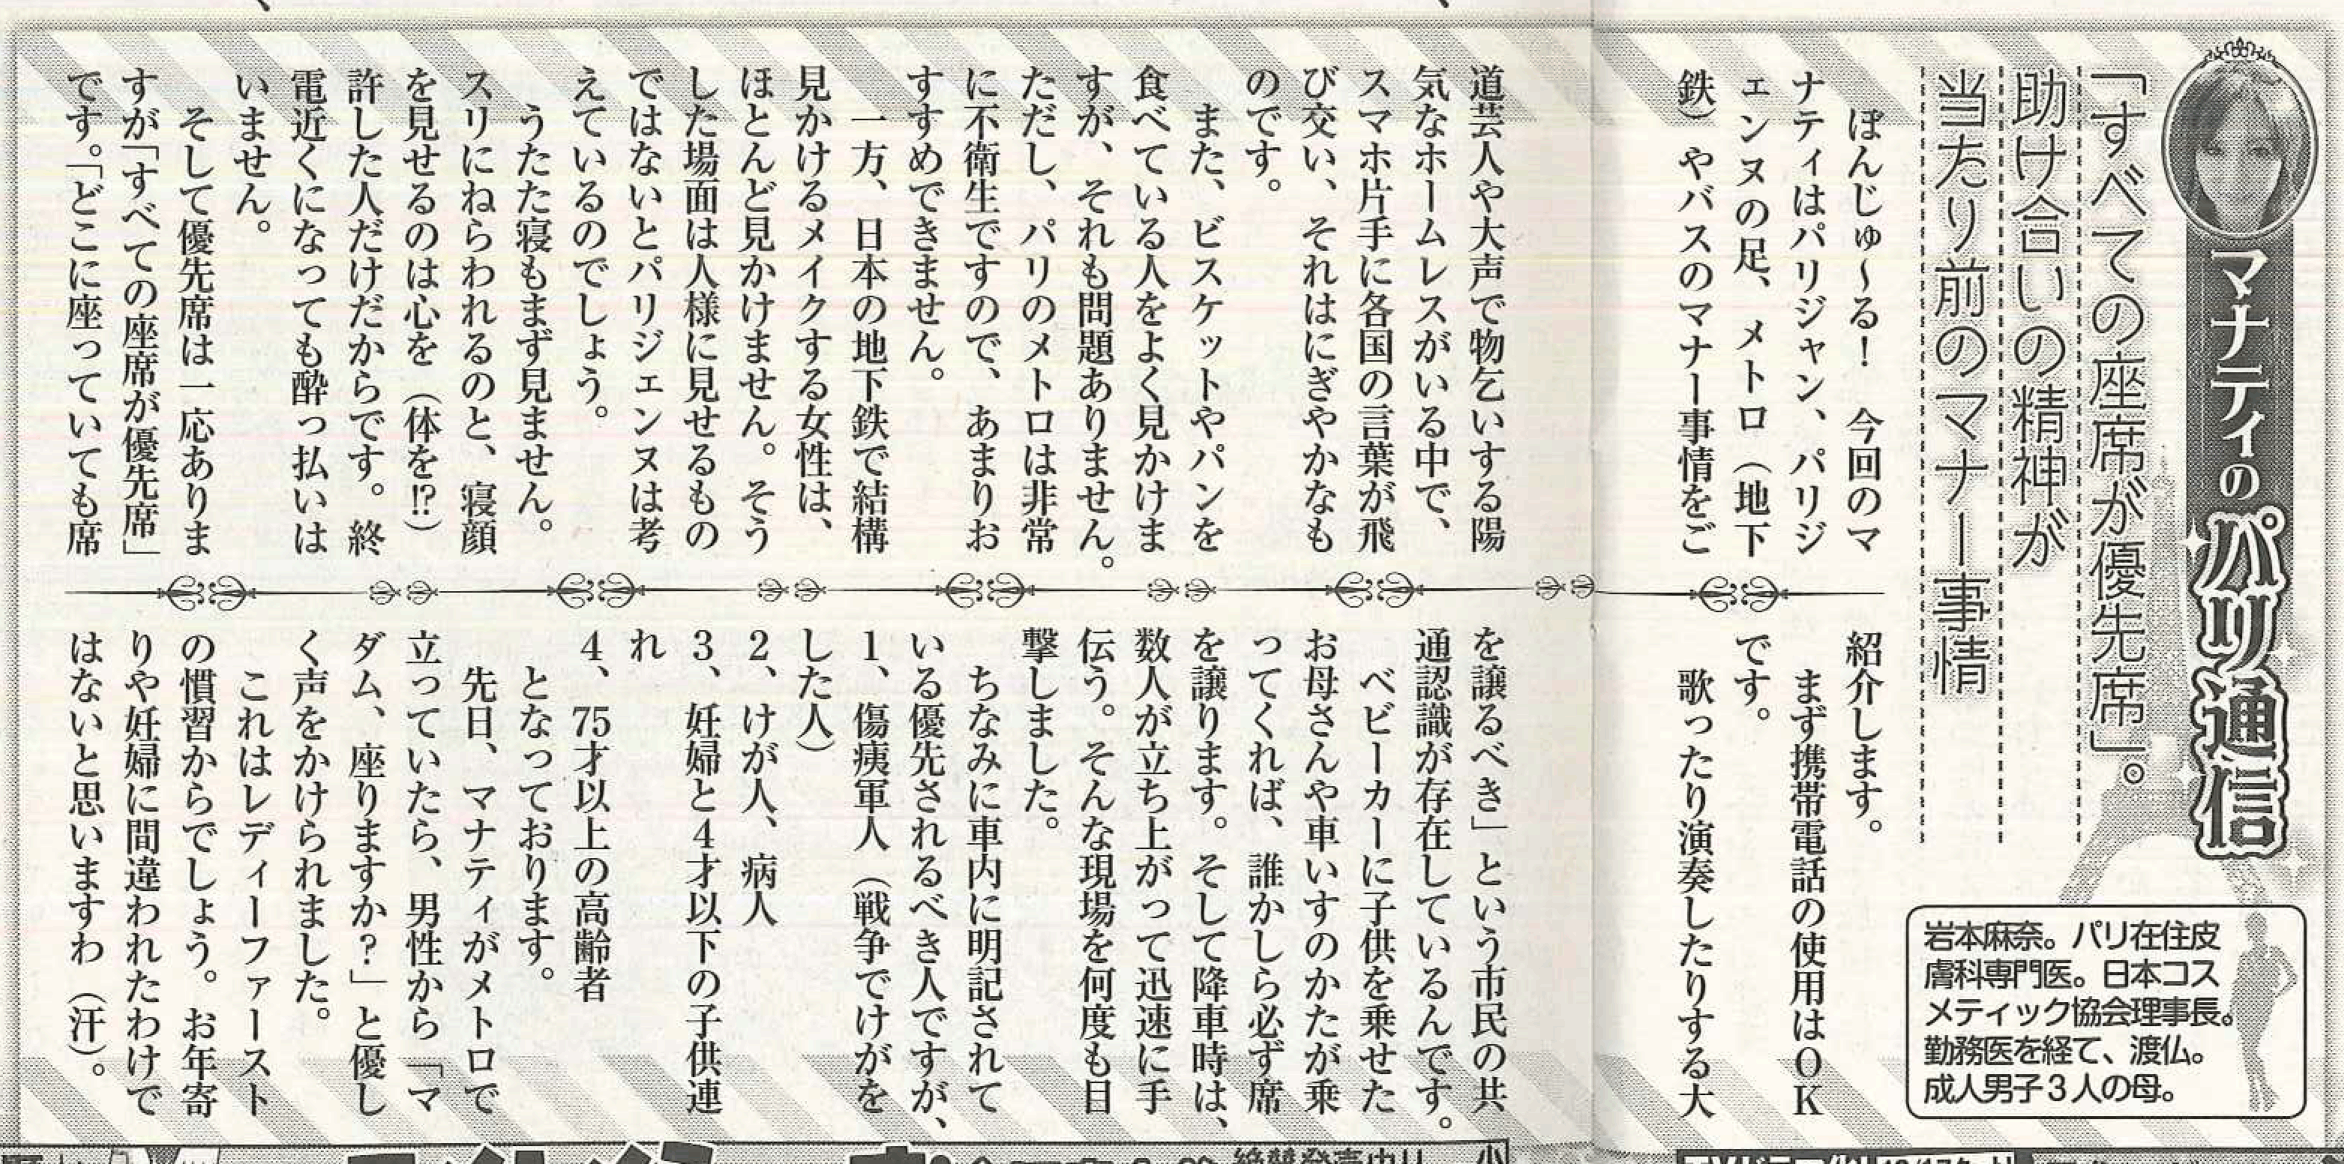 マナティのパリ通信
「すべての座席が優先席」。
助け合いの精神が
当たり前のマナー事情
岩本麻奈。パリ在住皮
膚科専門医。日本コス
メティック協会理事長。
勤務医を経て、渡仏。
成人男子3人の母。
ぼんじゅ〜る！　今回のマ
ナティはパリジャン、パリジ
ェンヌの足、メトロ（地下
鉄）やバスのマナー事情をご
紹介します。
まず携帯電話の使用はOK
です。
歌ったり演奏したりする大
道芸人や大声で物乞いする陽
気なホームレスがいる中で、
スマホ片手に各国の言葉が飛
び交い、それはにぎやかなも
のです。
また、ビスケットやパンを
食べている人をよく見かけま
すが、それも問題ありません。
ただし、パリのメトロは非常
に不衛生ですので、あまりお
すすめできません。
一方、日本の地下鉄で結構
見かけるメイクする女性は、
ほとんど見かけません。そう
した場面は人様に見せるもの
ではないとパリジェンヌは考
えているのでしょう。
うたた寝もまず見ません。
スリにねらわれるのと、寝顔
を見せるのは心を（体を!?）
許した人だけだからです。終
電近くになっても酔っ払いは
いません。
そして優先席は一応ありま
すが「すべての座席が優先席」
です。「どこに座っていても席
を譲るべき」という市民の共
通認識が存在しているんです。
ベビーカーに子供を乗せた
お母さんや車いすのかたが乗
ってくれば、誰かしら必ず席
を譲ります。そして降車時は、
数人が立ち上がって迅速に手
伝う。そんな現場を何度も目
撃しました。
ちなみに車内に明記されて
いる優先されるべき人ですが、
1、傷痍軍人（戦争でけがを
した人）
2、けが人、病人
3、妊婦と4才以下の子供連
れ
4、75才以上の高齢者
となっております。
先日、マナティがメトロで
立っていたら、男性から「マ
ダム、座りますか？」と優し
く声をかけられました。
これはレディーファースト
の慣習からでしょう。お年寄
りや妊婦に間違われたわけで
はないと思いますわ（汗）。